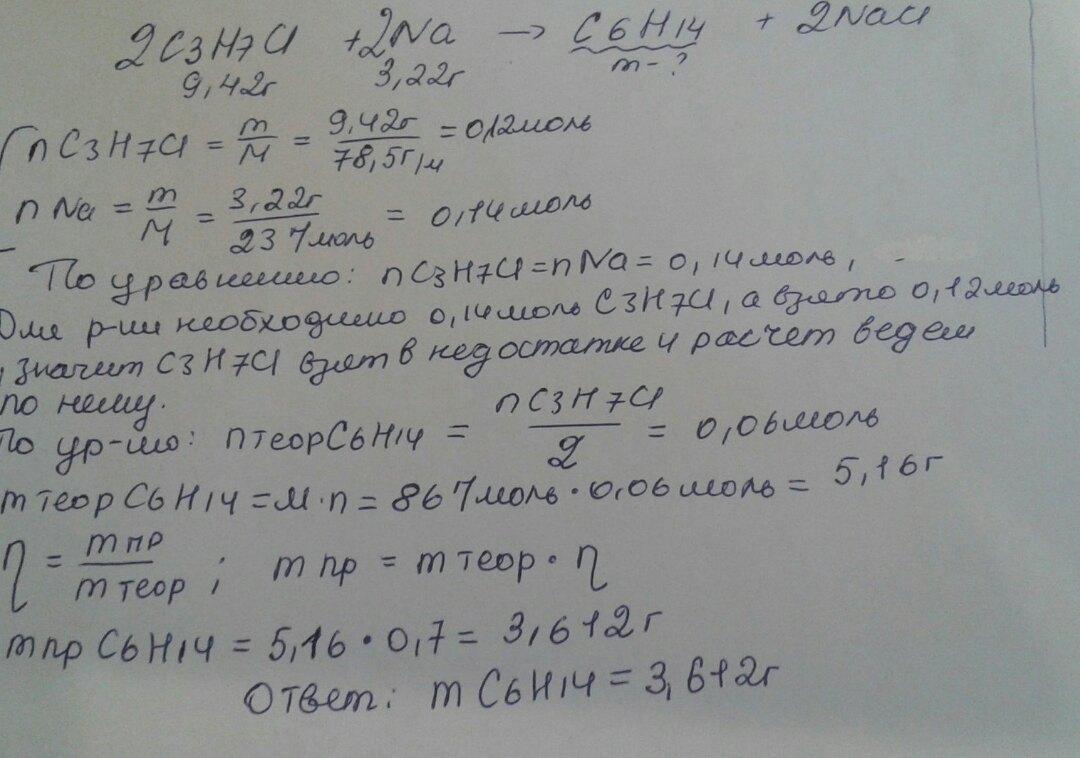 2C3H7Cl + 2Na → C6H14 + 2NaCl
9,42г 3,22г m-?
nC3H7Cl = m/M = 9,42г/78,5г/м = 0,12моль
n Na = m/M = 3,22г/23г/моль = 0,14моль
По уравнению: nC3H7Cl = nNa = 0,14моль,
Для р-ии необходимо 0,14моль C3H7Cl, а взято 0,12моль
, значит C3H7Cl взят в недостатке и расчет ведем
по нему.
По ур-ию: nтеорC6H14 = nC3H7Cl/2 = 0,06моль
mтеорC6H14 = M·n = 86г/моль·0,06моль = 5,16г
η = mпр/mтеор ; mпр = mтеор·η
mпрC6H14 = 5,16·0,7 = 3,612г
Ответ: mC6H14 = 3,612г